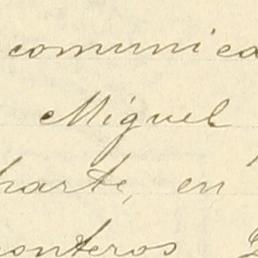 comunica
Miguel
harte, en
onteros